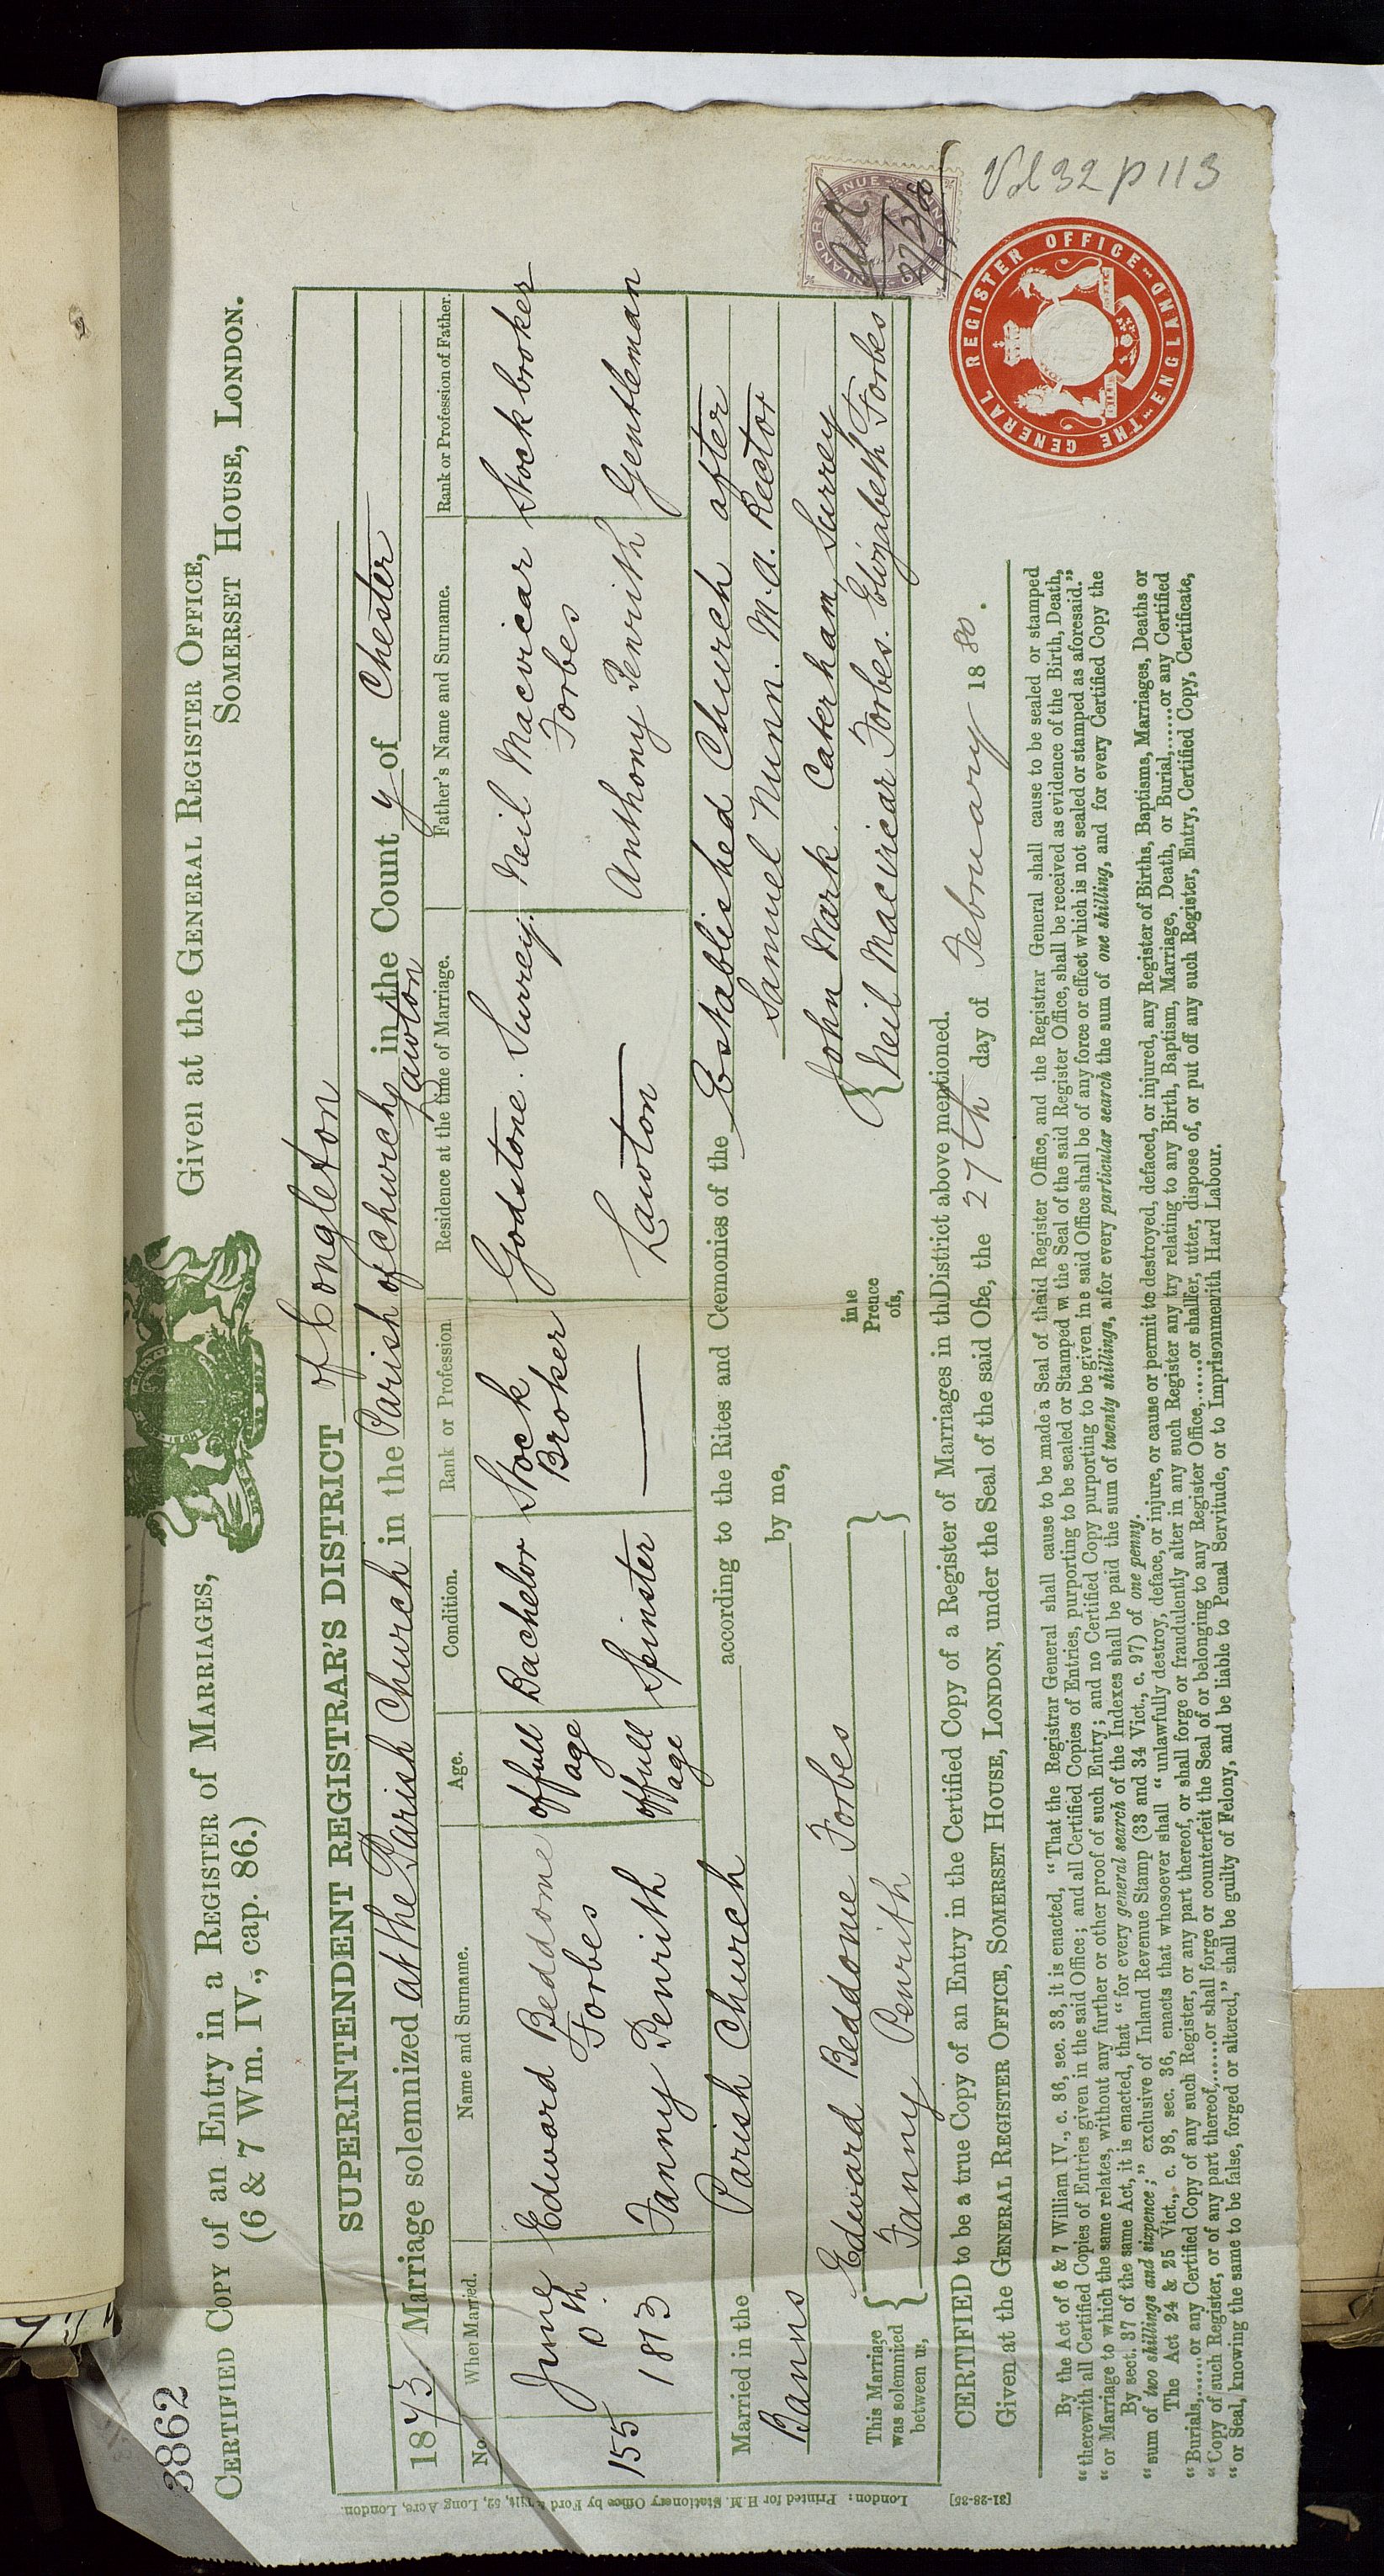 3862
CERTIFIED COPY of an Entry in a REGISTER of MARRIAGES,
(6 & 7 Wm. IV., cap. 86.)
Given at the GENERAL REGISTER OFFICE,
SOMERSET HOUSE, LONDON.
SUPERINTENDENT REGISTRAR'S DISTRICT of Congleton
1873 Marriage solemnized at the Parish Church in the Parish of Church Lawton in the County of Chester
No. When Married. Name and Surname. Age. Condition. Rank or Profession Residence at the time of Marriage. Father's Name and Surname. Rank or Profession of Father.
155 June Edward Beddome Forbes of full age Bachelor Stock Broker Godstone. Surrey. Neil Macvicar Forbes Stock broker
1873 Fanny Penrith of full age Spinster Lawton Anthony Penrith Gentleman
Married in the Parish Church according to the Rites and Ceremonies of the Established Church after
Banns by me, Samuel Nunn. M.A. Rector
This Marriage was solemnized between us, Edward Beddome Forbes
Fanny Penrith
in the Presence of us, John Wark. Caterham, Surrey
Neil Macvicar Forbes. Elizabeth Forbes
CERTIFIED to be a true Copy of an Entry in the Certified Copy of a Register of Marriages in the District above mentioned.
Given at the GENERAL REGISTER OFFICE, SOMERSET HOUSE, LONDON, under the Seal of the said Office, the 27th day of February 1880.
By the Act of 6 & 7 William IV., c. 86, sec. 38, it is enacted, "That the Registrar General shall cause to be made a Seal of the said Register Office, and the Registrar General shall cause to be sealed or stamped
"therewith all Certified Copies of Entries given in the said Office; and all Certified Copies of Entries, purporting to be sealed or Stamped with the Seal of the said Register Office, shall be received as evidence of the Birth, Death,
"or Marriage to which the same relates, without any further or other proof of such Entry; and no Certified Copy purporting to be given in the said Office shall be of any force or effect which is not sealed or stamped as aforesaid."
By sect. 37 of the same Act, it is enacted, that "for every general search of the Indexes shall be paid the sum of twenty shillings, and for every particular search the sum of one shilling, and for every Certified Copy the
"sum of two shillings and sixpence;" exclusive of Inland Revenue Stamp (33 and 34 Vict., c. 97) of one penny.
The Act 24 & 25 Vict., c. 98, sec. 36, enacts that whosoever shall "unlawfully destroy, deface, or injure, or cause or permit to be destroyed, defaced, or injured, any Register of Births, Baptisms, Marriages, Deaths or
"Burials,......or any Certified Copy of any such Register, or any part thereof, or shall forge or fraudulently alter in any such Register any entry relating to any Birth, Baptism, Marriage, Death, or Burial,......or any Certified
"Copy of such Register, or of any part thereof,......or shall forge or counterfeit the Seal of or belonging to any Register Office,......or shall offer, utter, dispose of, or put off any such Register, Entry, Certified Copy, Certificate,
"or Seal, knowing the same to be false, forged or altered," shall be guilty of Felony, and be liable to Penal Servitude, or to Imprisonment with Hard Labour.
27/2/80
Vol 32 p 113
THE GENERAL REGISTER OFFICE ENGLAND
London: Printed for H.M. Stationery Office by Ford & Tilt, 52, Long Acre, London.
[31-28-35]